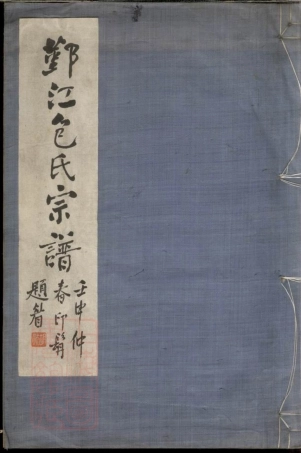 鄞江包氏宗譜
壬申仲
春印鸞
題耑